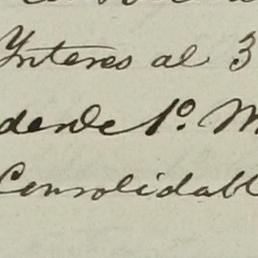 Interes al 3
desde 1º. M
Consolidabl